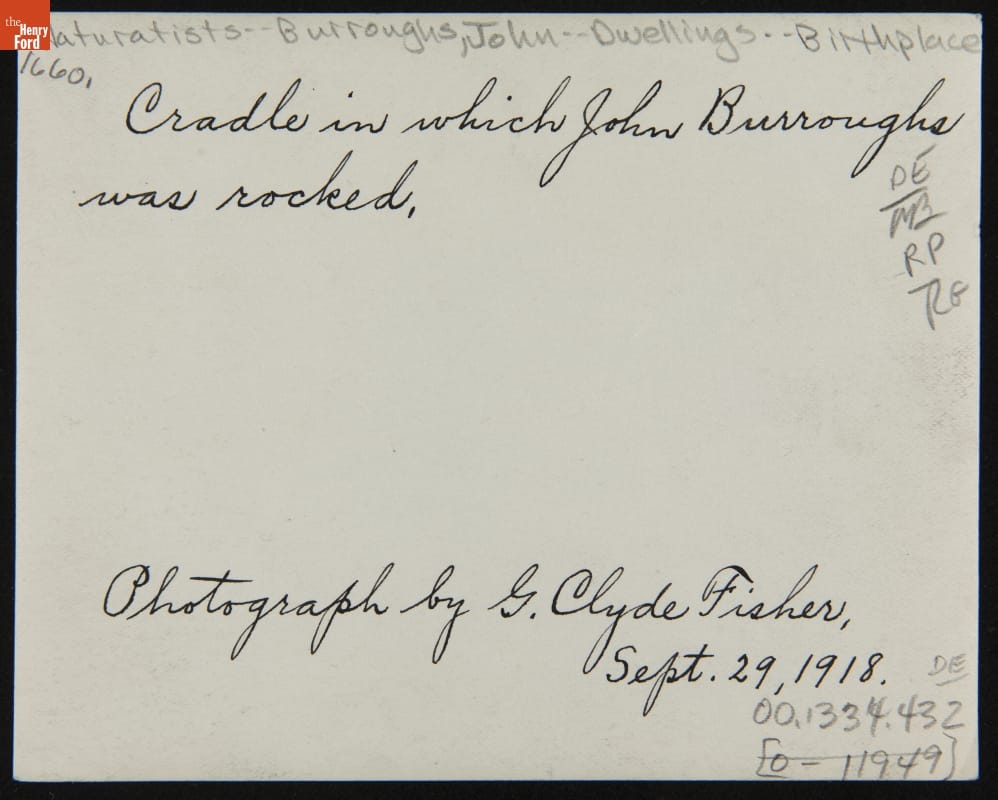 the
Henry
Ford
Naturatists--Burroughs, John--Dwellings--Birthplace
1660.
Cradle in which John Burroughs
was rocked.
DE
MB
RP
RE
Photograph by G. Clyde Fisher,
Sept. 29, 1918.
DE
00.1334.432
[0-11949]